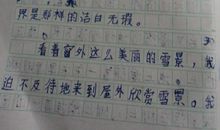 界是那样的洁白无瑕。
看着窗外这么美丽的雪景，我
迫不及待地来到屋外欣赏雪景。我